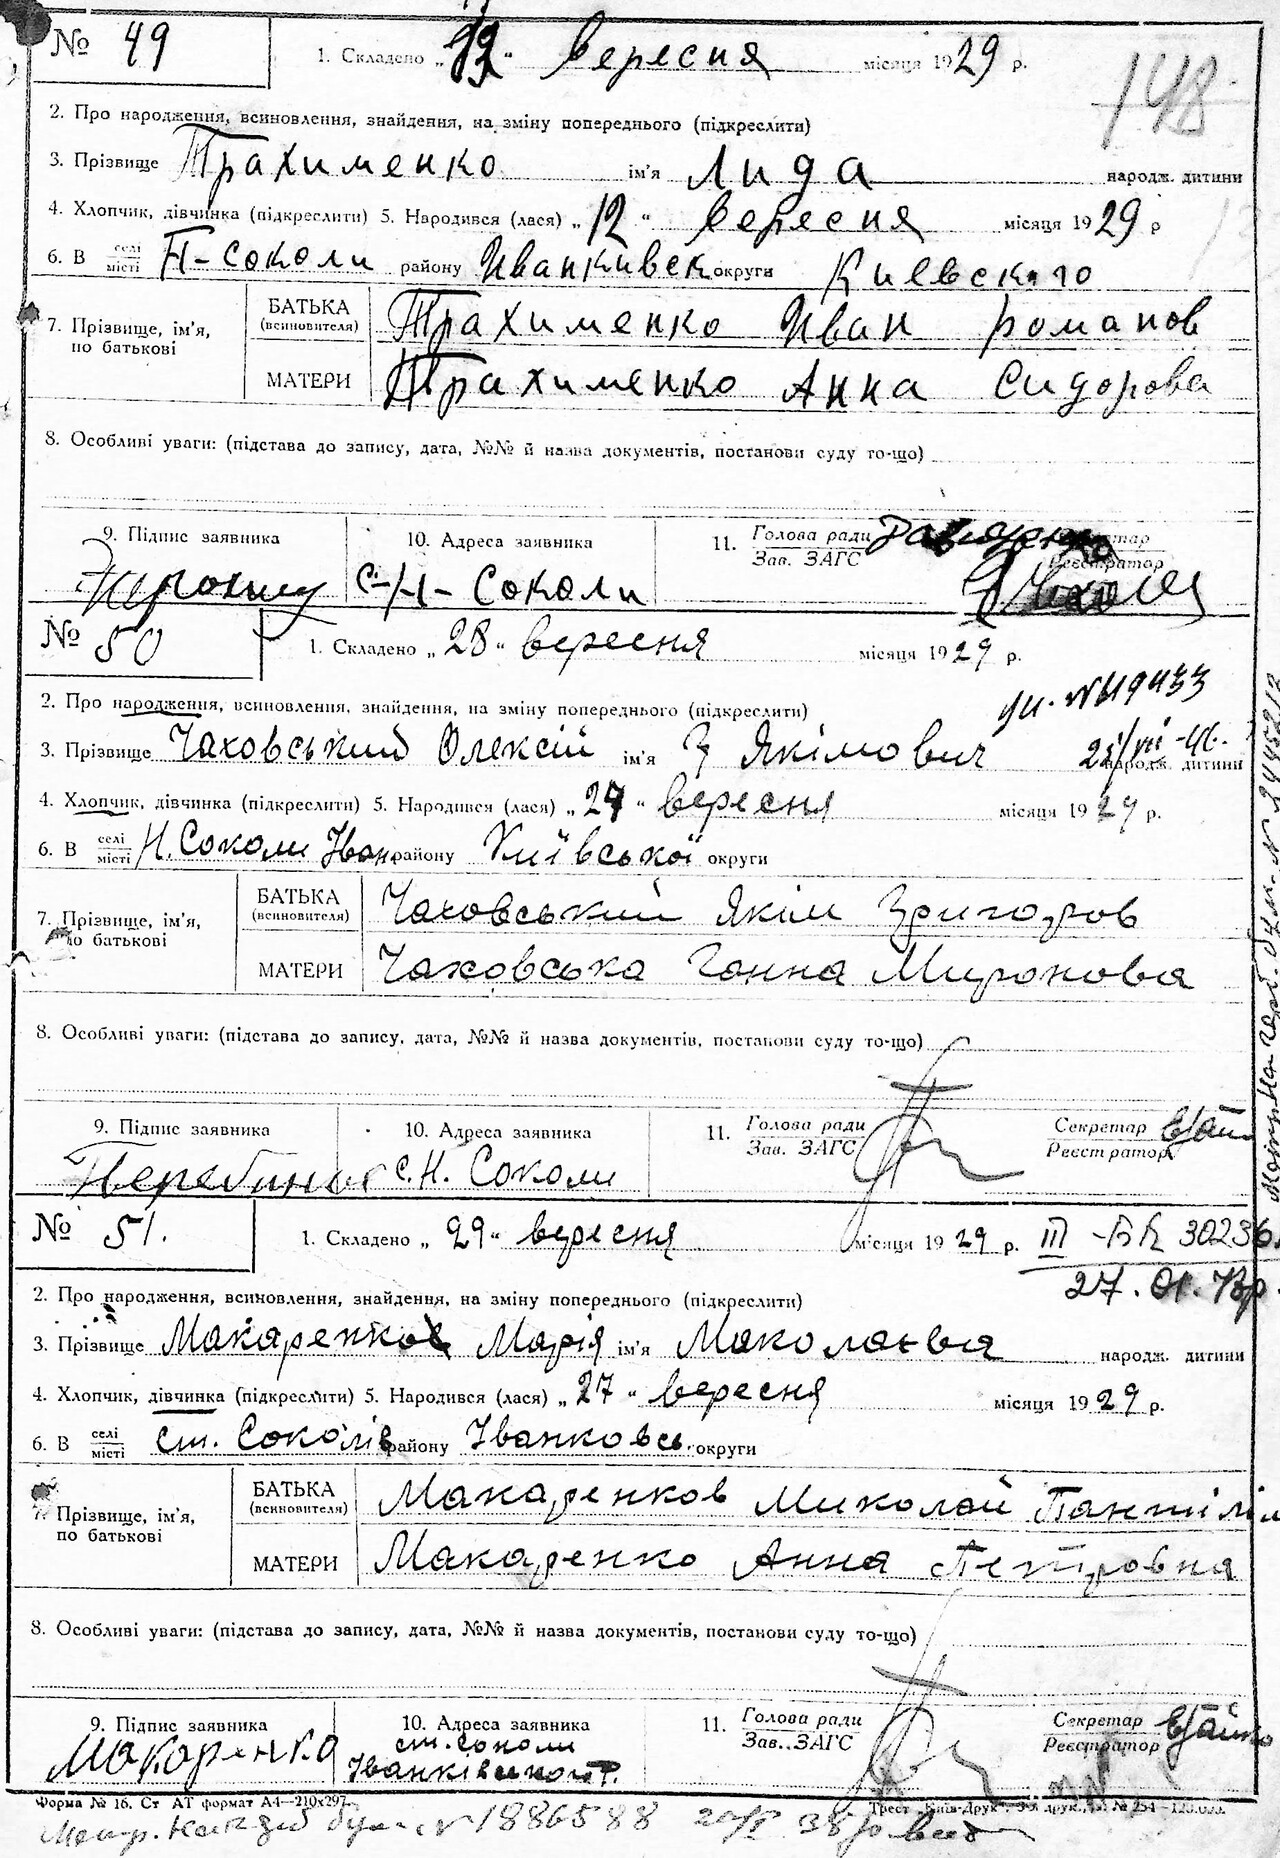 № 49
1. Складено „ “ вересня місяця 1929 р.
148
2. Про народження, всиновлення, знайдення, на зміну попереднього (підкреслити)
3. Прізвище Трахименко ім'я Лида народж. дитини
4. Хлопчик, дівчинка (підкреслити) 5. Народився (лася) „12“ вересня місяця 1929 р
6. В селі місті Н-Соколи району Иванкивск округи Киевского
7. Прізвище, ім'я, по батькові
БАТЬКА (всиновителя) Трахименко Иван Романов
МАТЕРИ Трахименко Анна Сидорова
8. Особливі уваги: (підстава до запису, дата, №№ й назва документів, постанови суду то-що)
9. Підпис заявника
10. Адреса заявника
11. Голова ради Зав. ЗАГС
Секретар Реєстратор
с-Н-Соколи
№ 50
1. Складено „28“ вересня місяця 1929 р.
2. Про народження, всиновлення, знайдення, на зміну попереднього (підкреслити)
3. Прізвище Чаховський Олексій ім'я Якімович народж. дитини
4. Хлопчик, дівчинка (підкреслити) 5. Народився (лася) „27“ вересня місяця 1929 р.
6. В селі місті Н. Соколи Іван. району Київської округи
7. Прізвище, ім'я, по батькові
БАТЬКА (всиновителя) Чаховський Якім Григоров
МАТЕРИ Чаховська Ганна Миронова
8. Особливі уваги: (підстава до запису, дата, №№ й назва документів, постанови суду то-що)
9. Підпис заявника
10. Адреса заявника
11. Голова ради Зав. ЗАГС
Секретар Реєстратор
с. Н. Соколи
№ 51.
1. Складено „29“ вересня місяця 1929 р.
III -БК 30236
2. Про народження, всиновлення, знайдення, на зміну попереднього (підкреслити)
3. Прізвище Макаренков Марія ім'я Маколаєва народж. дитини
4. Хлопчик, дівчинка (підкреслити) 5. Народився (лася) „27“ вересня місяця 1929 р.
6. В селі місті ст. Соколів району Іванковсь. округи
7. Прізвище, ім'я, по батькові
БАТЬКА (всиновителя) Макаренков Миколай
МАТЕРИ Макаренко Анна Петровна
8. Особливі уваги: (підстава до запису, дата, №№ й назва документів, постанови суду то-що)
9. Підпис заявника
10. Адреса заявника
11. Голова ради Зав. ЗАГС
Секретар Реєстратор
Макаренко
ст. Соколи
Іванківського Р.
Форма № 16. Ст АТ формат А4—210х297.
Трест „Київ-Друк“
№ 1886588